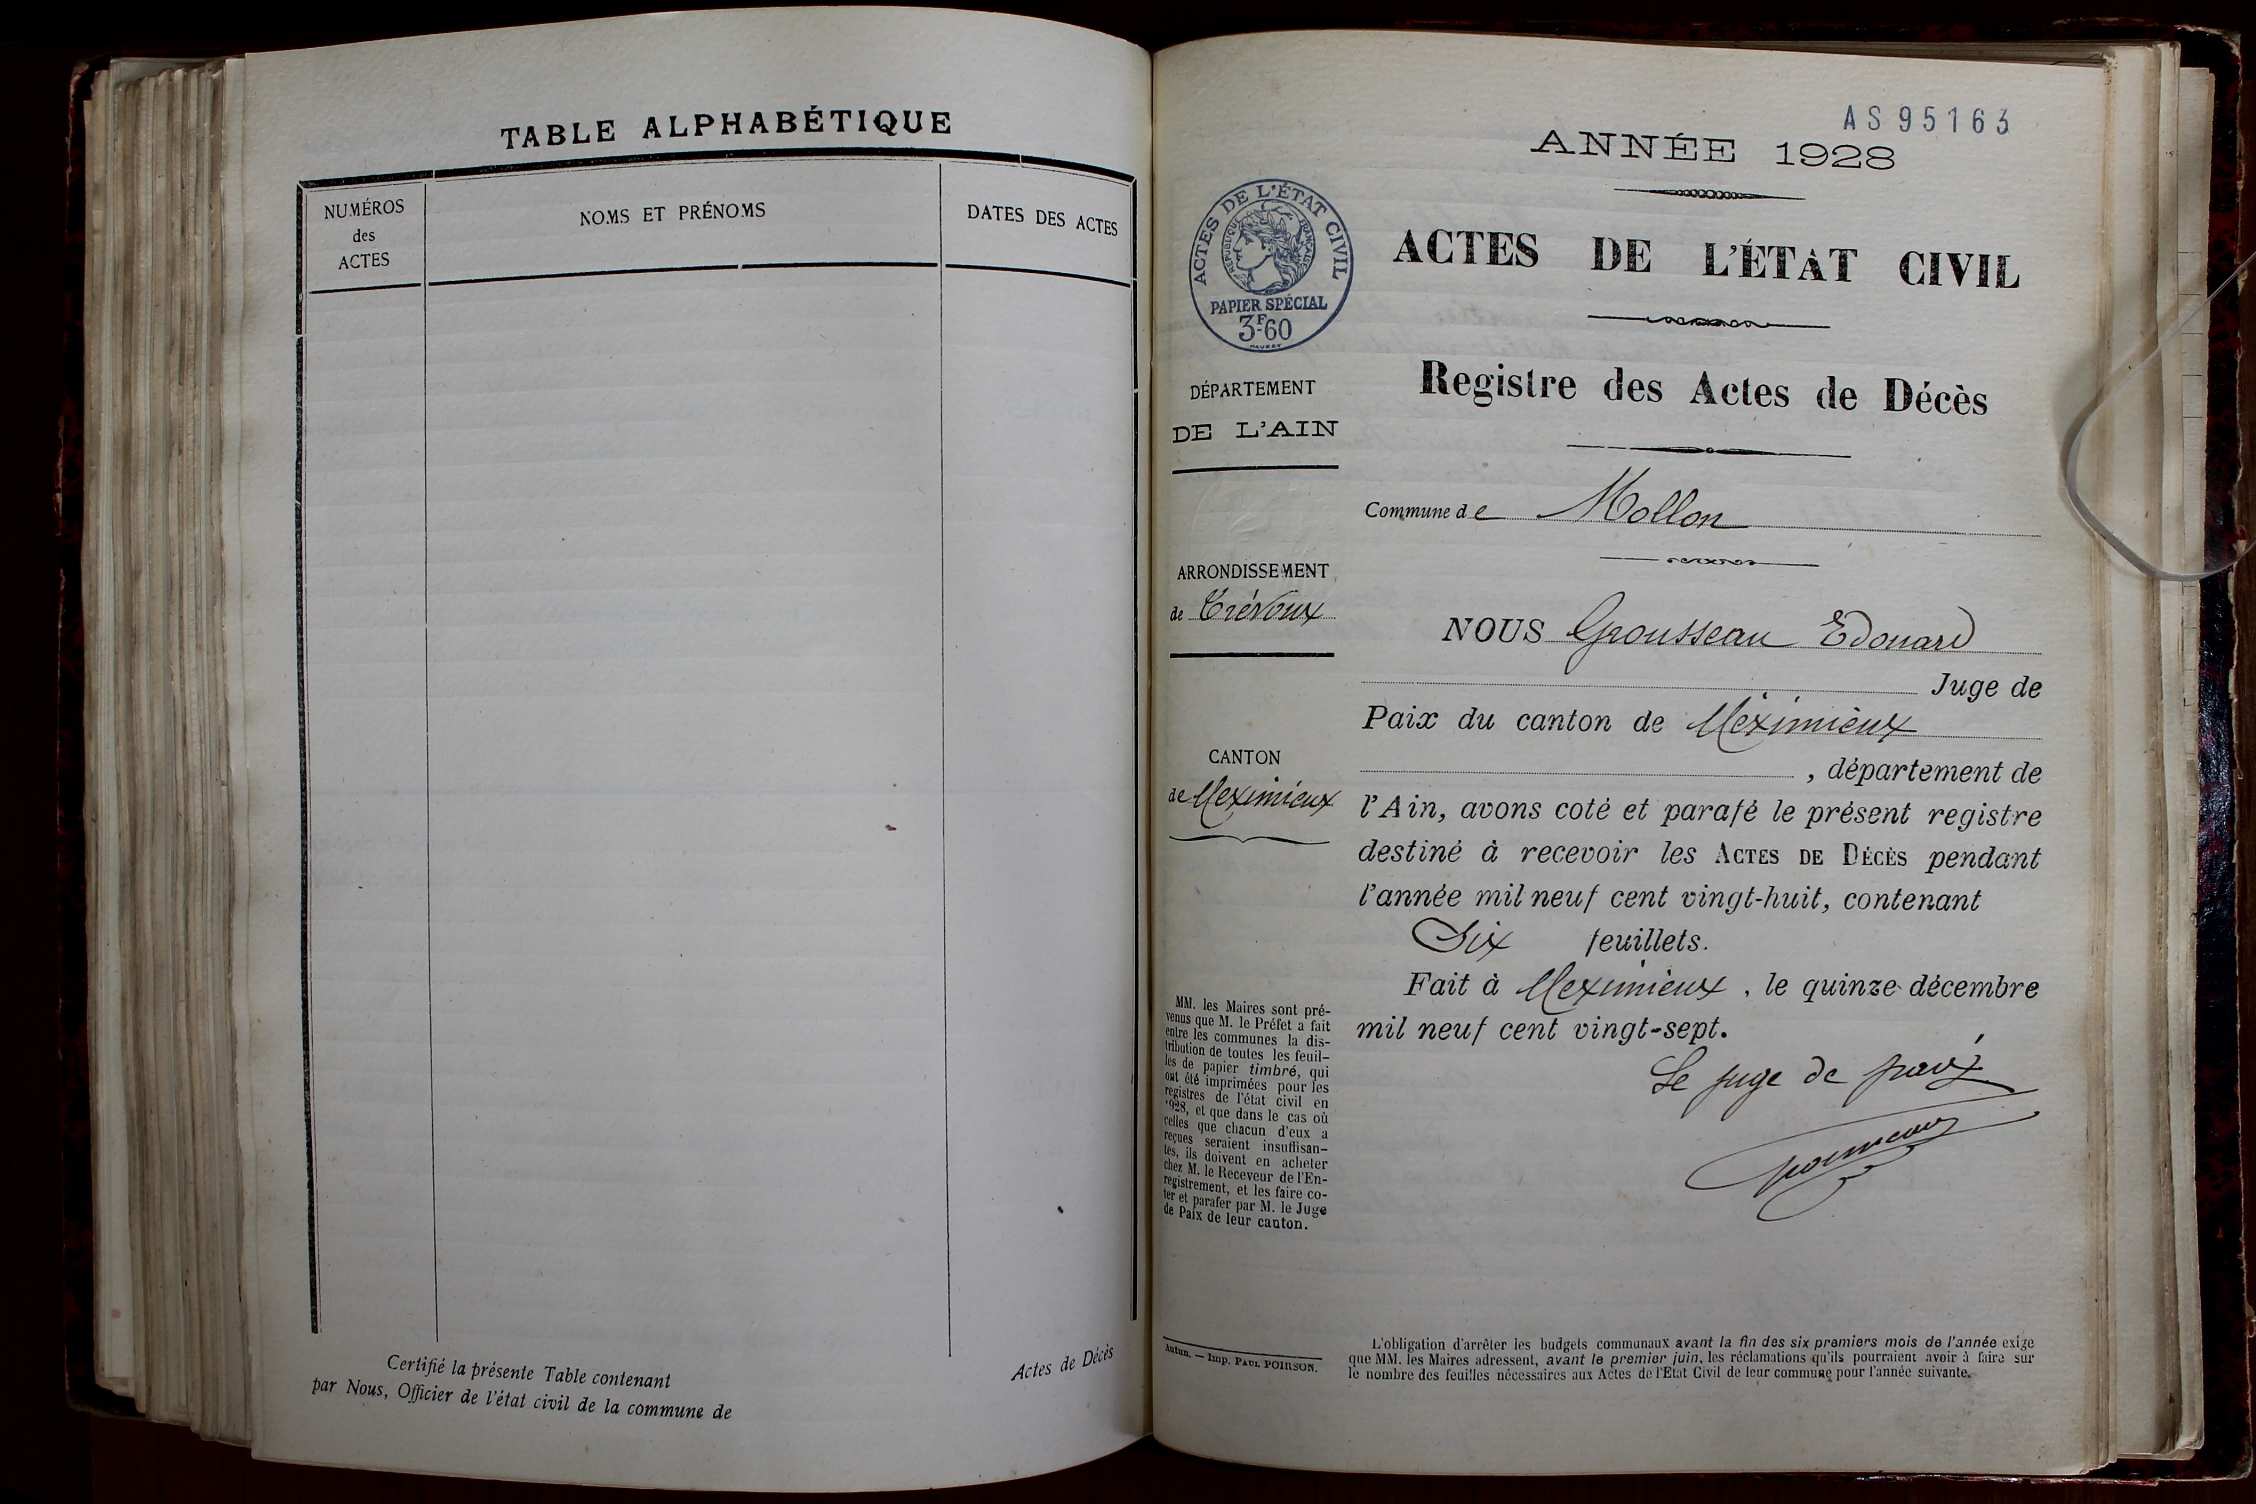 TABLE ALPHABÉTIQUE
NUMÉROS
des
ACTES
NOMS ET PRÉNOMS
DATES DES ACTES
Certifié la présente Table contenant
Actes de Décès
par Nous, Officier de l'état civil de la commune de
AS95163
ANNÉE 1928
ACTES DE L'ÉTAT CIVIL
RÉPUBLIQUE FRANÇAISE
PAPIER SPÉCIAL
3F60
ACTES DE L'ÉTAT CIVIL
Registre des Actes de Décès
DÉPARTEMENT
DE L'AIN
Commune de Mollon
ARRONDISSEMENT
de Trévoux
CANTON
de Meximieux
NOUS Grousseau Edouard
Juge de
Paix du canton de Meximieux
, département de
l'Ain, avons coté et parafé le présent registre
destiné à recevoir les ACTES DE DÉCÈS pendant
l'année mil neuf cent vingt-huit, contenant
Six feuillets.
Fait à Meximieux, le quinze décembre
mil neuf cent vingt-sept.
Le juge de paix
MM. les Maires sont pré-
venus que M. le Préfet a fait
entre les communes la dis-
tribution de toutes les feuil-
les de papier timbré, qui
ont été imprimées pour les
registres de l'état civil en
1928, et que dans le cas où
celles que chacun d'eux a
reçues seraient insuffisan-
tes, ils doivent en acheter
chez M. le Receveur de l'En-
registrement, et les faire co-
ter et parafer par M. le Juge
de Paix de leur canton.
Autun. — Imp. PAUL POIRSON.
L'obligation d'arrêter les budgets communaux avant la fin des six premiers mois de l'année exige
que MM. les Maires adressent, avant le premier juin, les réclamations qu'ils pourraient avoir à faire sur
le nombre des feuilles nécessaires aux Actes de l'Etat Civil de leur commune pour l'année suivante.